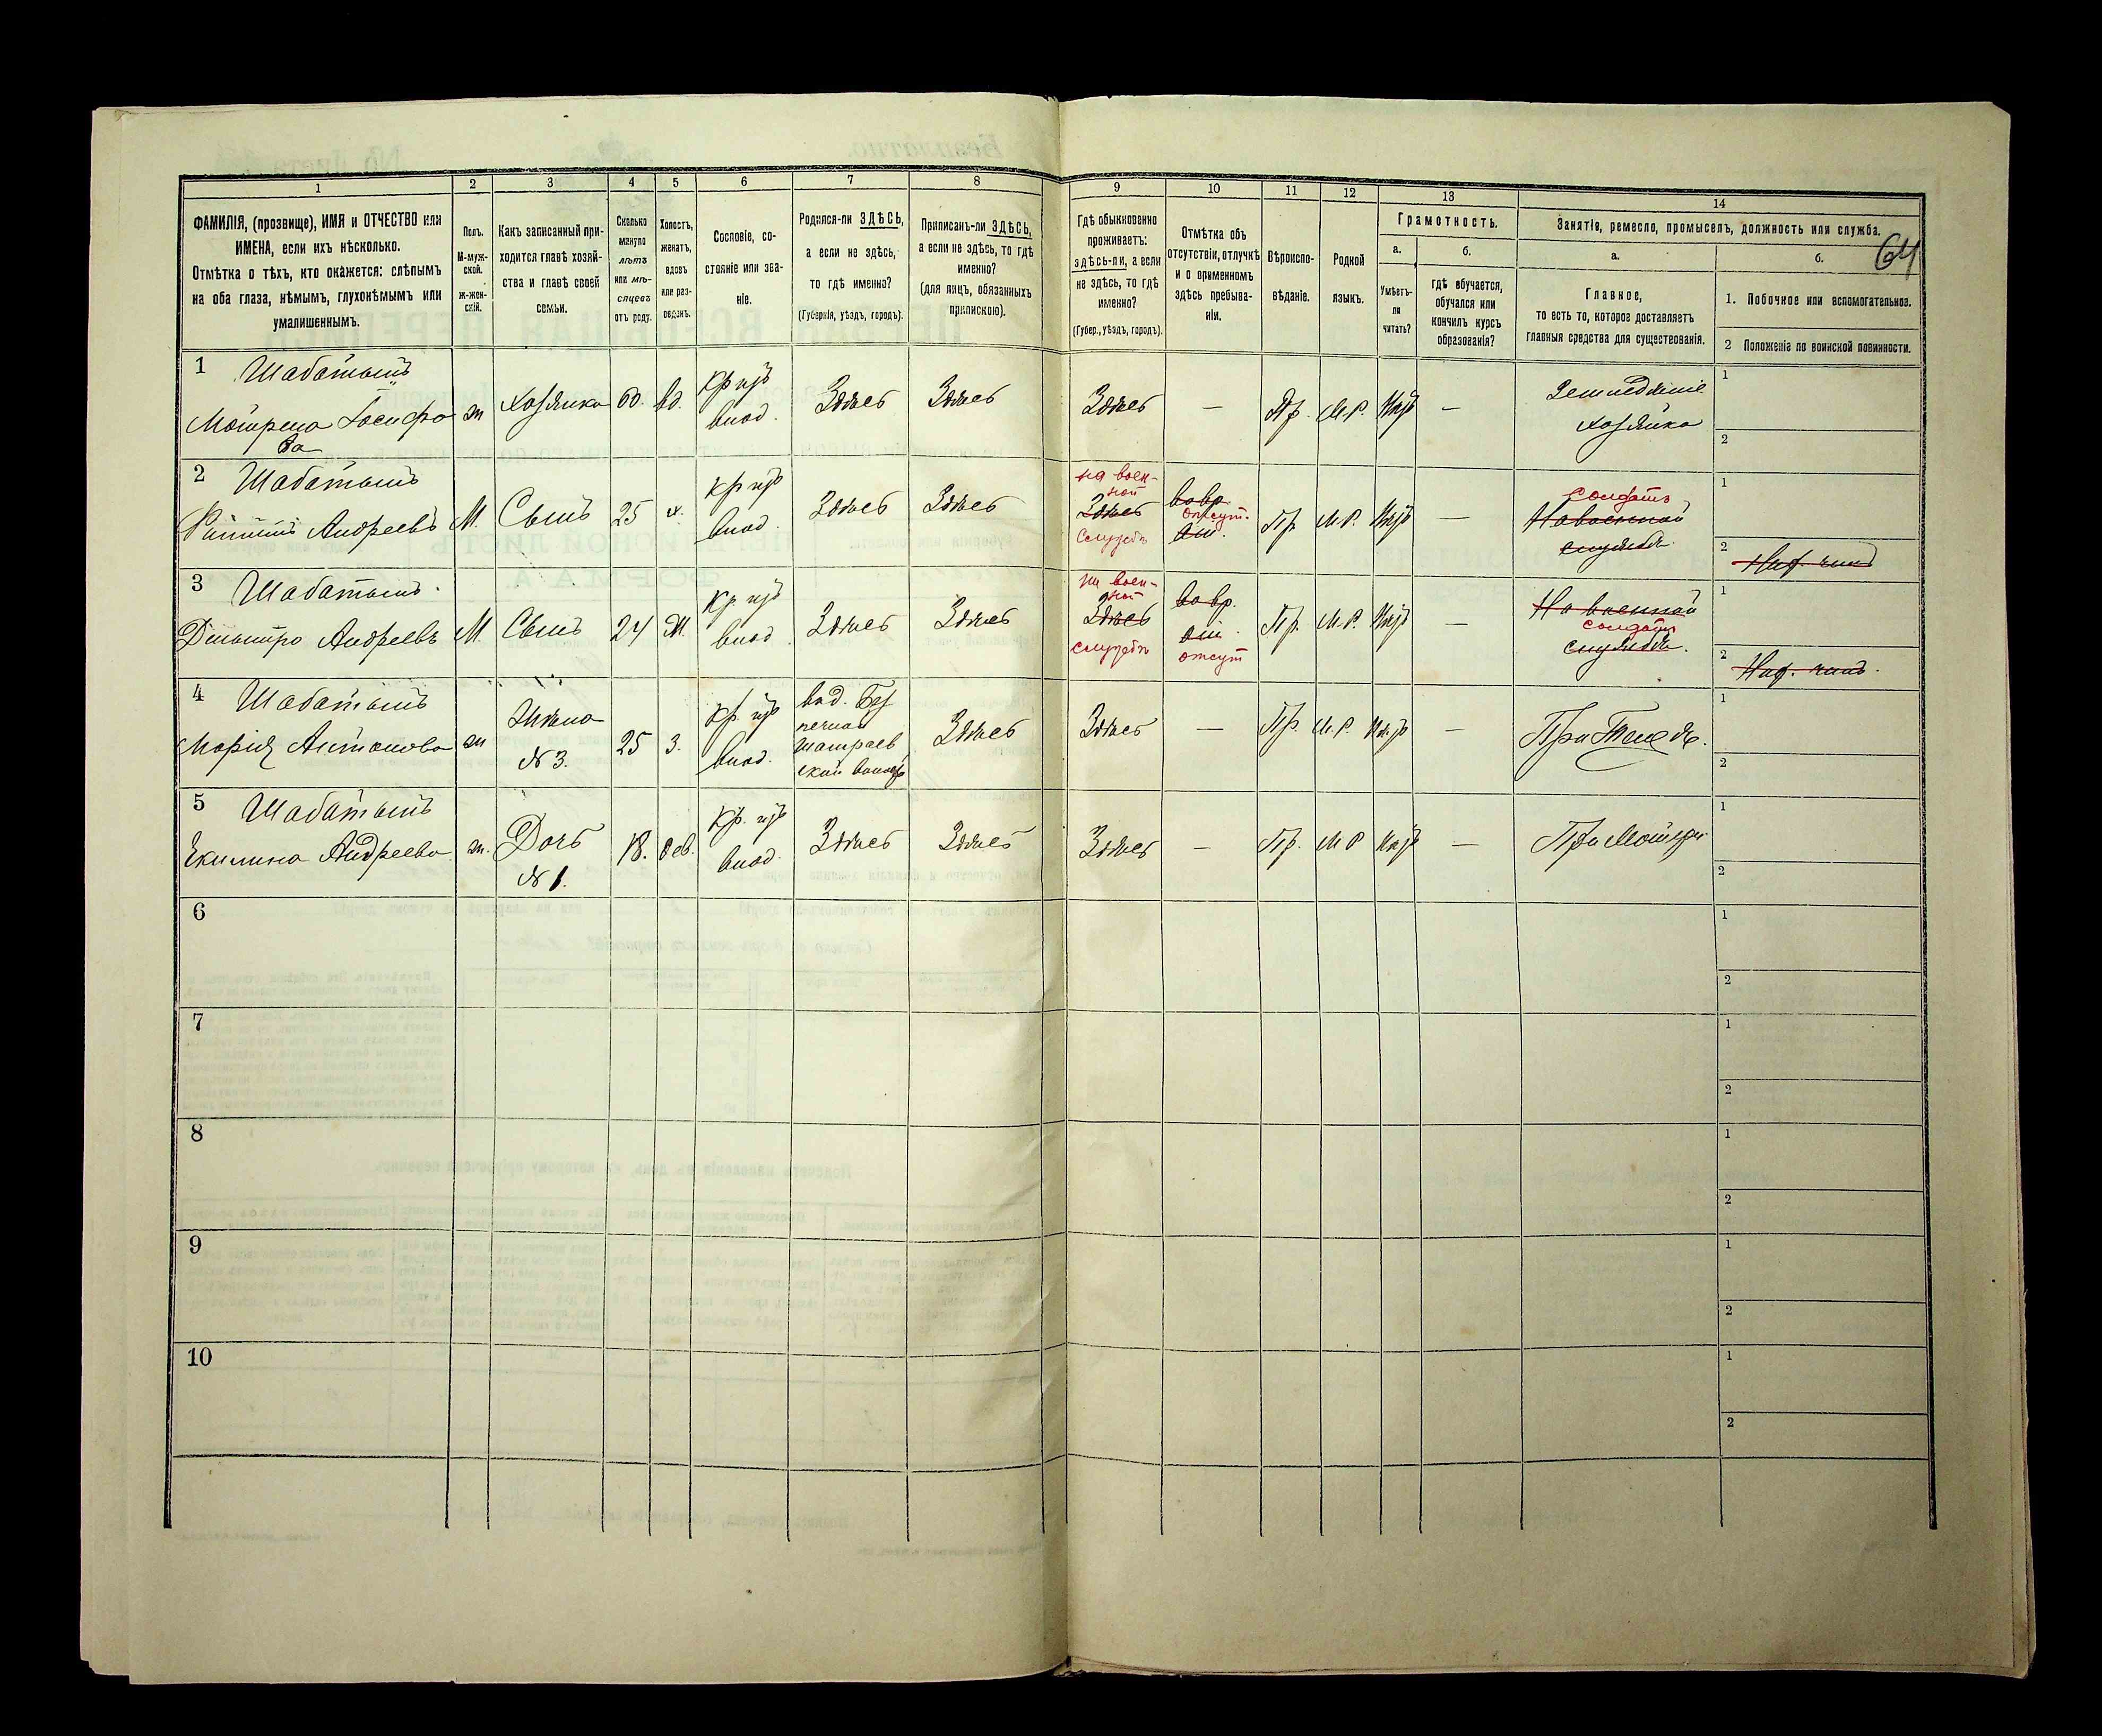 64
1
2
3
4
5
6
7
8
9
10
11
12
13
14
ФАМИЛІЯ, (прозвище), ИМЯ и ОТЧЕСТВО или
ИМЕНА, если ихъ нѣсколько.
Отмѣтка о тѣхъ, кто окажется: слѣпымъ
на оба глаза, нѣмымъ, глухонѣмымъ или
умалишеннымъ.
Полъ.
М-муж-
ской.
Ж-жен-
скій.
Какъ записанный при-
ходится главѣ хозяй-
ства и главѣ своей
семьи.
Сколько
минуло
лѣтъ
или мѣ-
сяцевъ
отъ роду.
Холостъ,
женатъ,
вдовъ
или раз-
веденъ.
Сословіе, со-
стояніе или зва-
ніе.
Родился-ли ЗДѢСЬ,
а если не здѣсь,
то гдѣ именно?
(Губернія, уѣздъ, городъ).
Приписанъ-ли ЗДѢСЬ,
а если не здѣсь, то гдѣ
именно?
(для лицъ, обязанныхъ
припискою).
Гдѣ обыкновенно
проживаетъ:
здѣсь-ли, а если
не здѣсь, то гдѣ
именно?
(Губер., уѣздъ, городъ).
Отмѣтка объ
отсутствіи, отлучкѣ
и о временномъ
здѣсь пребыва-
ніи.
Вѣроиспо-
вѣданіе.
Родной
языкъ.
Грамотность.
а.
Умѣетъ-
ли
читать?
б.
гдѣ обучается,
обучался или
кончилъ курсъ
образованія?
Занятія, ремесло, промыселъ, должность или служба.
а.
Главное,
то есть то, которое доставляетъ
главныя средства для существованія.
б.
1. Побочное или вспомогательное.
2 Положеніе по воинской повинности.
1
Шабатынъ
Мотрена Іосифо
ва
ж
Хозяйка
60.
вд.
кр изъ
влад.
Здѣсь
Здѣсь
Здѣсь
—
Пр.
М.Р.
Нѣтъ
—
Земледѣліе
хозяйка
1
2
2
Шабатынъ
Андреевъ
М.
Сынъ
25
х.
кр изъ
влад.
Здѣсь
Здѣсь
на воен-
ной
Здѣсь
службѣ
во вр.
отсут.
Пр
М.Р.
Нѣтъ
—
солдатъ
На военной
службѣ.
1
2
Ниж. чинъ
3
Шабатынъ.
Дмытро Андреевъ
М.
Сынъ
24
Ж.
Кр. изъ
влад.
Здѣсь
Здѣсь
на воен-
ной
Здѣсь
службѣ
во вр.
отсут
Пр.
М.Р.
Нѣтъ
—
На военной
солдатъ
службѣ.
1
2
Ниж. чинъ.
4
Шабатынъ
Марія Антонова
ж
Жена
№ 3.
25
З.
кр. изъ
влад.
Здѣсь
Здѣсь
—
Пр.
М.Р.
Нѣтъ
—
1
2
5
Шабатынъ
Екилина Андреева
ж.
Дочь
№ 1.
18.
дев.
кр. изъ
влад.
Здѣсь
Здѣсь
Здѣсь
—
Пр.
М Р
Нѣтъ
—
При Матери
1
2
6
1
2
7
1
2
8
1
2
9
1
2
10
1
2